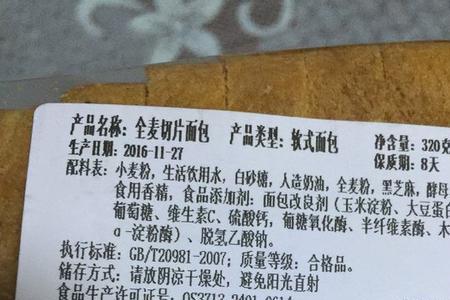 产品名称: 全麦切片面包 产品类型: 软式面包 净含量: 320克
生产日期: 2016-11-27 保质期: 8天
配料表: 小麦粉, 生活饮用水, 白砂糖, 人造奶油, 全麦粉, 黑芝麻, 酵母
食用香精, 食品添加剂: 面包改良剂 (玉米淀粉、大豆蛋白
葡萄糖、维生素C、硫酸钙, 葡糖氧化酶、半纤维素酶、木
α-淀粉酶)、脱氢乙酸钠。
执行标准: GB/T20981-2007; 质量等级: 合格品。
储存方式: 请放阴凉干燥处, 避免阳光直射
食品生产许可证号: QS3713 2401 0614